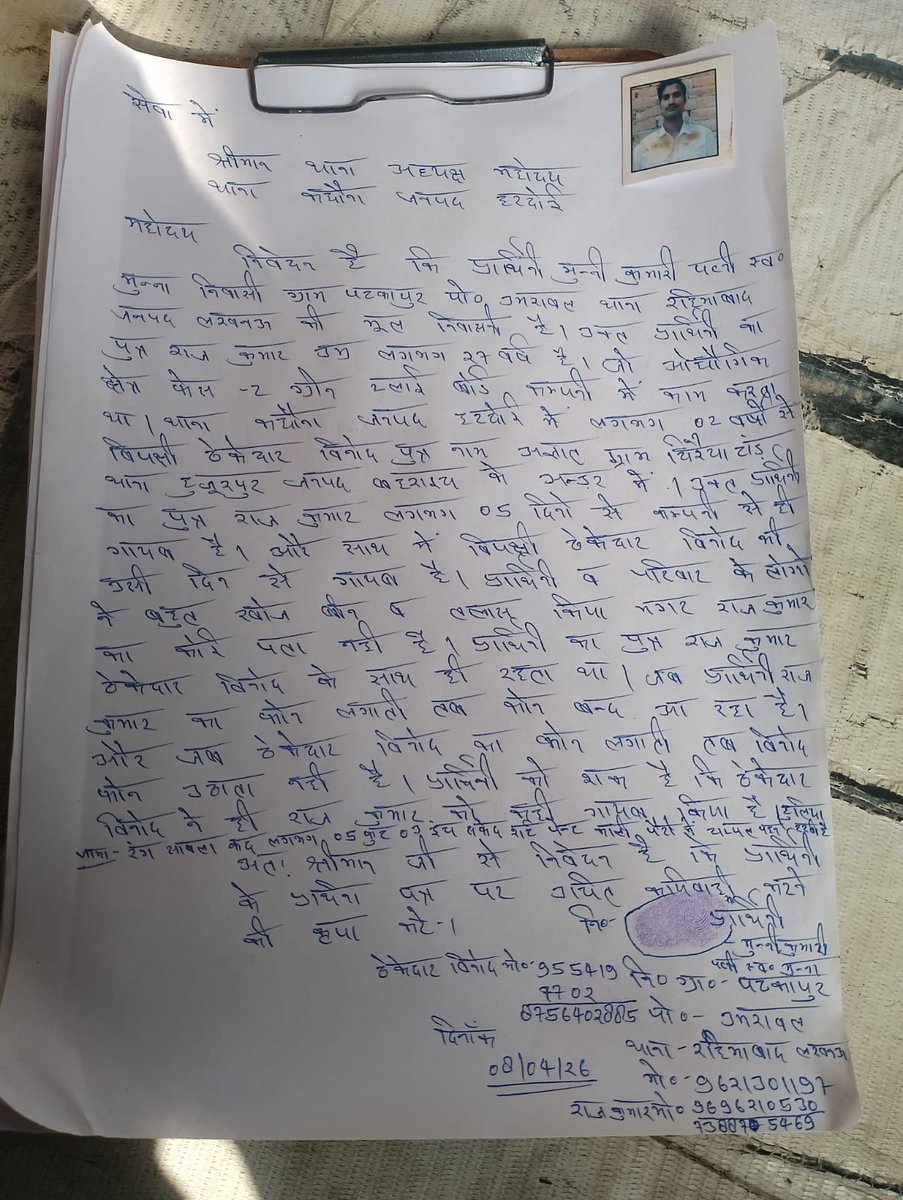 सेवा में
श्रीमान थाना अध्यक्ष महोदय
थाना कछौना जनपद हरदोई
महोदय
निवेदन है कि प्रार्थिनी मुन्नी कुमारी पत्नी स्व०
मुन्ना निवासी ग्राम पटकापुर पो० उमरावल थाना रहिमाबाद
जनपद लखनऊ की मूल निवासी है। उक्त प्रार्थिनी का
पुत्र राज कुमार उम्र लगभग 27 वर्ष है। जो ओद्यौगिक
क्षेत्र फेस -2 ग्रीन प्लाई बोर्ड कम्पनी में काम करता
था। थाना कछौना जनपद हरदोई में लगभग 02 वर्षो से
विपक्षी ठेकेदार विनोद पुत्र नाम अज्ञात ग्राम चिरैया टांड
थाना हुजूरपुर जनपद बहराइच के अन्डर में। उक्त प्रार्थिनी
का पुत्र राज कुमार लगभग 05 दिनो से कम्पनी से ही
गायब है। और साथ में विपक्षी ठेकेदार विनोद भी
उसी दिन से गायब है। प्रार्थिनी व परिवार के लोगो
ने बहुत खोज बीन व तलास किया मगर राज कुमार
का कोई पता नही है। प्रार्थिनी का पुत्र राज कुमार
ठेकेदार विनोद के साथ ही रहता था। जब प्रार्थिनी राज
कुमार का फोन लगाती तब फोन बन्द आ रहा है।
और जब ठेकेदार विनोद का फोन लगाती तब विनोद
फोन उठाता नही है। प्रार्थिनी को शक है कि ठेकेदार
विनोद ने ही राज कुमार को कही गायब किया है। हुलिया
जामा - रंग सावला कद लगभग 05 फुट 02 इंच सफेद शर्ट पेन्ट काली पैरो में चप्पल
अतः श्रीमान जी से निवेदन है कि प्रार्थिनी
के प्रार्थना पत्र पर उचित कार्यवाही करने
की कृपा करे।
नि० प्रार्थिनी
मुन्नी कुमारी
पत्नी स्व० मुन्ना
ठेकेदार विनोद मो० 955419
7702
8756402885
नि० ग्रा० - पटकापुर
पो० - उमरावल
थाना - रहिमाबाद लखनऊ
दिनाँक
08/04/26
मो० - 9621301197
राजकुमार मो० 9696210530